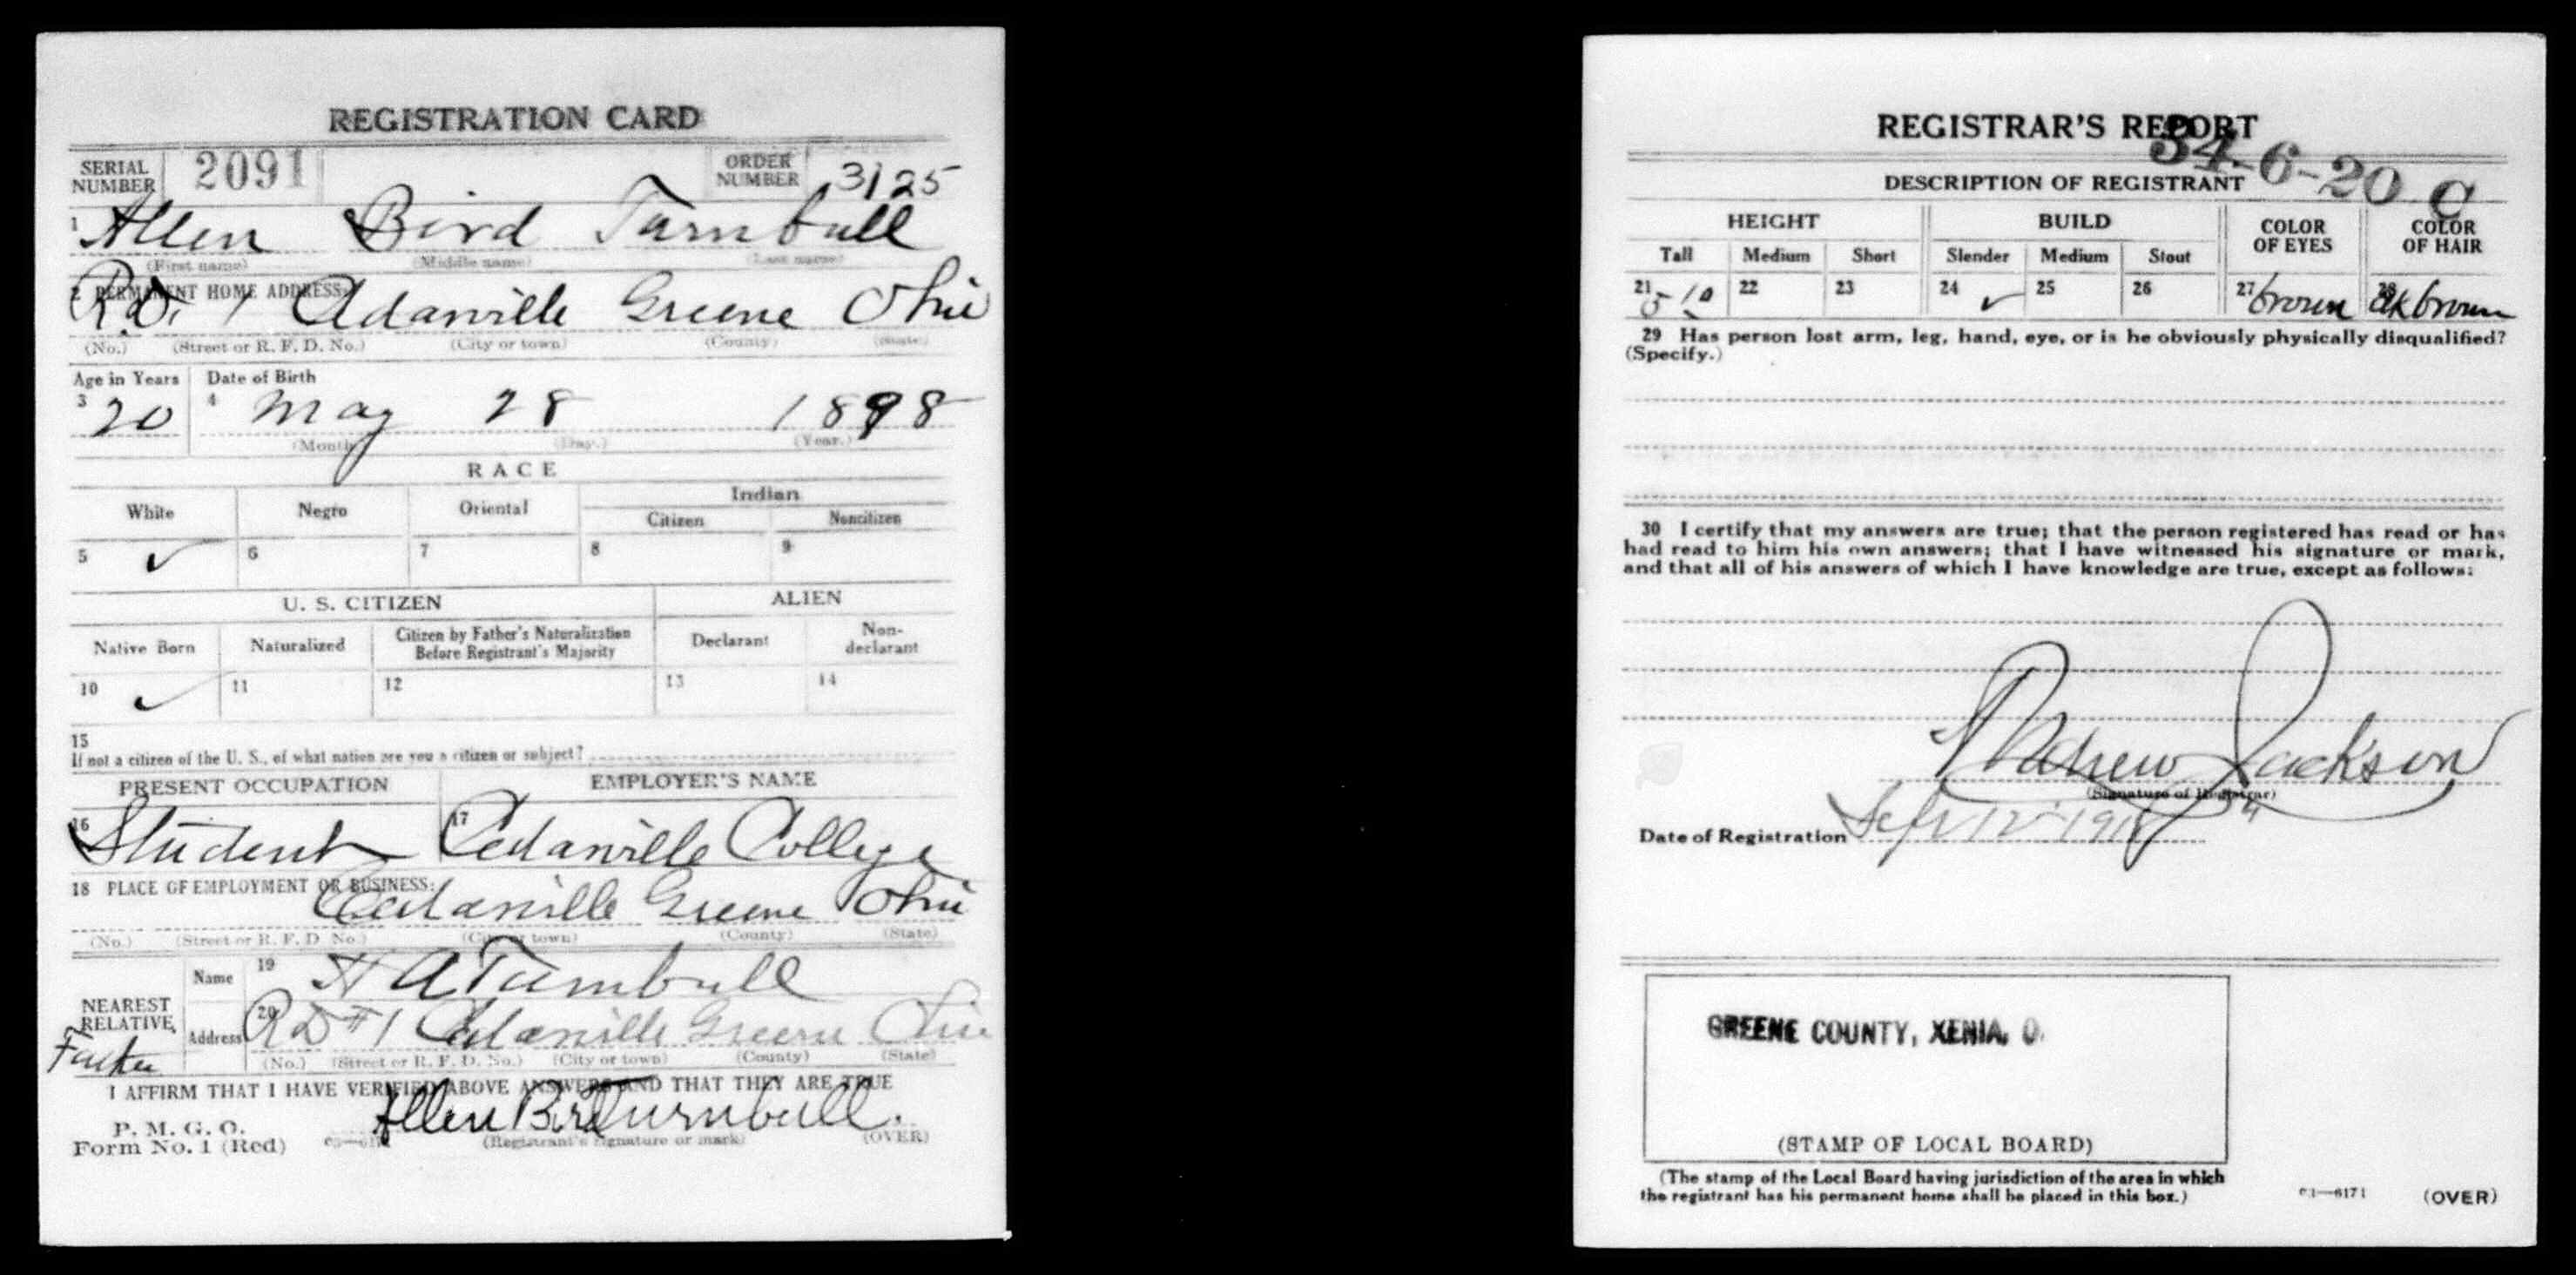 REGISTRATION CARD
SERIAL NUMBER 2091 ORDER NUMBER 3125
1 Allen Bird Turnbull
(First name) (Middle name) (Last name)
2 PERMANENT HOME ADDRESS:
R.D. 1 Cedarville Greene Ohio
(No.) (Street or R. F. D. No.) (City or town) (County) (State)
Age in Years Date of Birth
3 20 4 May 28 1898
(Month) (Day.) (Year.)
RACE
White Negro Oriental Indian
Citizen Noncitizen
5 ✓ 6 7 8 9
U. S. CITIZEN ALIEN
Native Born Naturalized Citizen by Father's Naturalization Before Registrant's Majority Declarant Non-declarant
10 ✓ 11 12 13 14
15
If not a citizen of the U. S., of what nation are you a citizen or subject?
PRESENT OCCUPATION EMPLOYER'S NAME
16 Student 17 Cedarville College
18 PLACE OF EMPLOYMENT OR BUSINESS:
Cedarville Greene Ohio
(No.) (Street or R. F. D. No.) (City or town) (County) (State)
NEAREST RELATIVE Father
Name 19 H A Turnbull
Address 20 RD #1 Cedarville Greene Ohio
(No.) (Street or R. F. D. No.) (City or town) (County) (State)
I AFFIRM THAT I HAVE VERIFIED ABOVE ANSWERS AND THAT THEY ARE TRUE
P. M. G. O.
Form No. 1 (Red) Allen Bird Turnbull.
(Registrant's signature or mark) (OVER)
REGISTRAR'S REPORT
34-6-20 C
DESCRIPTION OF REGISTRANT
HEIGHT BUILD COLOR OF EYES COLOR OF HAIR
Tall Medium Short Slender Medium Stout
21 5 10 22 23 24 ✓ 25 26 27 brown 28 dk brown
29 Has person lost arm, leg, hand, eye, or is he obviously physically disqualified?
(Specify.)
30 I certify that my answers are true; that the person registered has read or has
had read to him his own answers; that I have witnessed his signature or mark,
and that all of his answers of which I have knowledge are true, except as follows:
Andrew Jackson
(Signature of Registrar)
Date of Registration Sept 12 1918
GREENE COUNTY, XENIA, O.
(STAMP OF LOCAL BOARD)
(The stamp of the Local Board having jurisdiction of the area in which
the registrant has his permanent home shall be placed in this box.)
03—6171 (OVER)